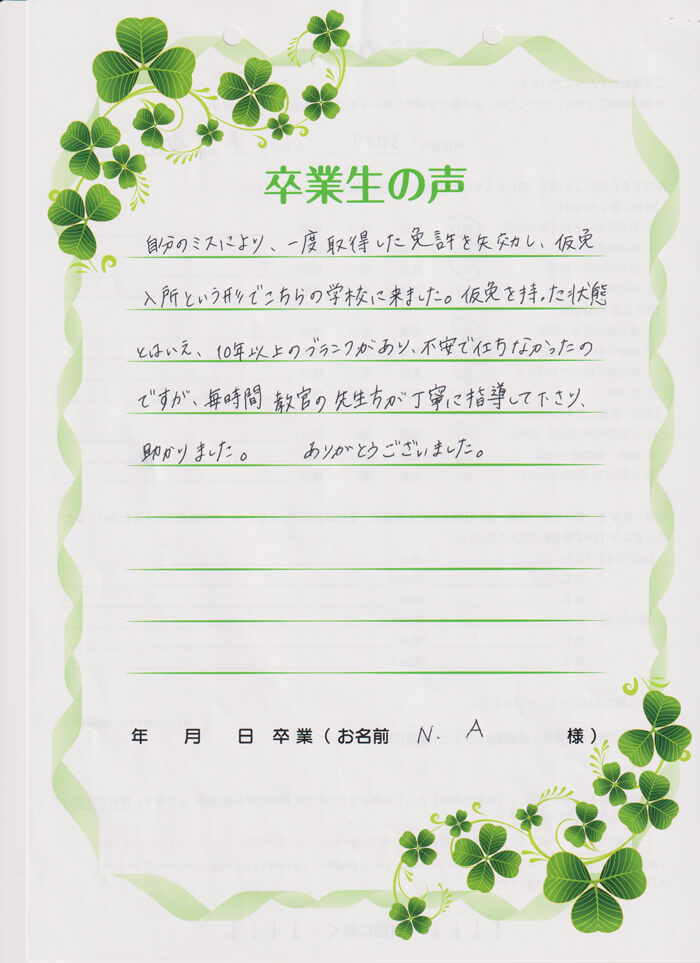 卒業生の声
自分のミスにより、一度取得した免許を失効し、仮免
入所という形でこちらの学校に来ました。仮免を持った状態
とはいえ、10年以上のブランクがあり、不安で仕ちなかったの
ですが、毎時間 教官の先生方が丁寧に指導して下さり、
助かりました。 ありがとうございました。
年 月 日 卒業(お名前 N. A 様)